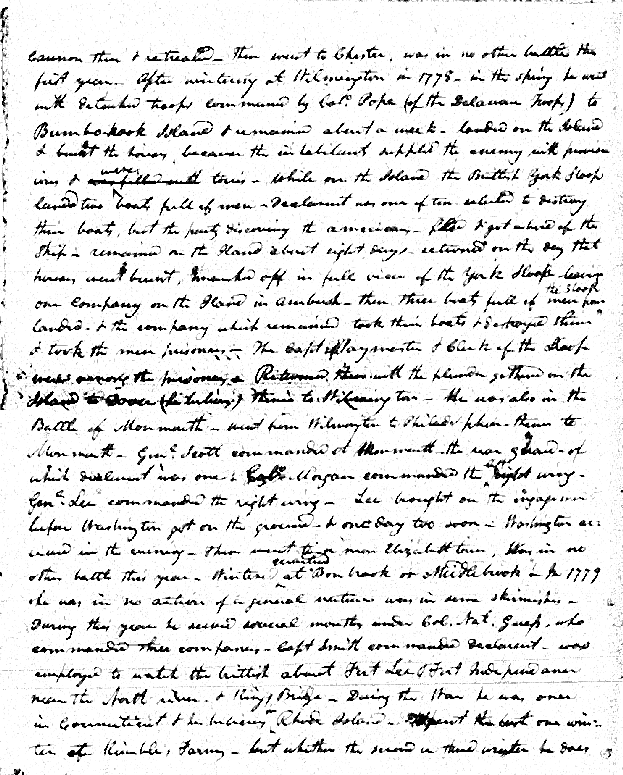 Cannon then & retreated - then went to Chester, was in no other battle the
first year - After wintering at Wilmington in 1778 - in the spring he went
with detached troops commanded by Col. Pope (of the Delaware Troops) to
Bumbo-hook Island & remained about a week - landed on the Island
& burnt the houses, because the inhabitants supplied the enemy with provis
ions & were tories - While on the Island the British York Sloop
landed two boats full of men - Declarant was one of ten selected to destroy
their boats, but the party discovering the americans - fled & got aboard of the
Ship - remained on the Island about eight days - returned on the day that
houses went burnt, marched off in full view of the York Sloop leaving
one Company on the Island in ambush - then three boats full of men from the Sloop
landed - & the company which remained took their boats & destroyed them
& took the men prisoners - The Capt Paymaster & Clerk of the Sloop
were among the prisoners - Returned then with the plunder gathered on the
Island to Dover (he believes) thence to Wilmington - He was also in the
Battle of Monmouth - went from Wilmington to Philadelphia - thence to
Monmouth - Genl. Scott commanded at Monmouth the rear guard - of
which declarant was one & Col. Morgan commanded the right wing -
Genl. Lee commanded the right wing - Lee brought on the ingagement
before Washington got on the ground - & one day too soon - Washington ar
rived in the evening - Then went to or near Elizabeth town, Was in no
other battle this year - Wintered at Bonbrook or Middlebrook - In 1779
he was in no action of a general nature was in some skirmishes -
During this year he served several months under Col. Nat. Guess, who
commanded three companies - Capt Smith commanded declarant - was
employed to watch the brittish about Fort Lee & Fort Independence
near the North river & Kings Bridge - During the War he was once
in Connecticut & he believes Rhode Island - Spent the last one win-
ter at Kimble's Farms - but whether the second or third winter he does